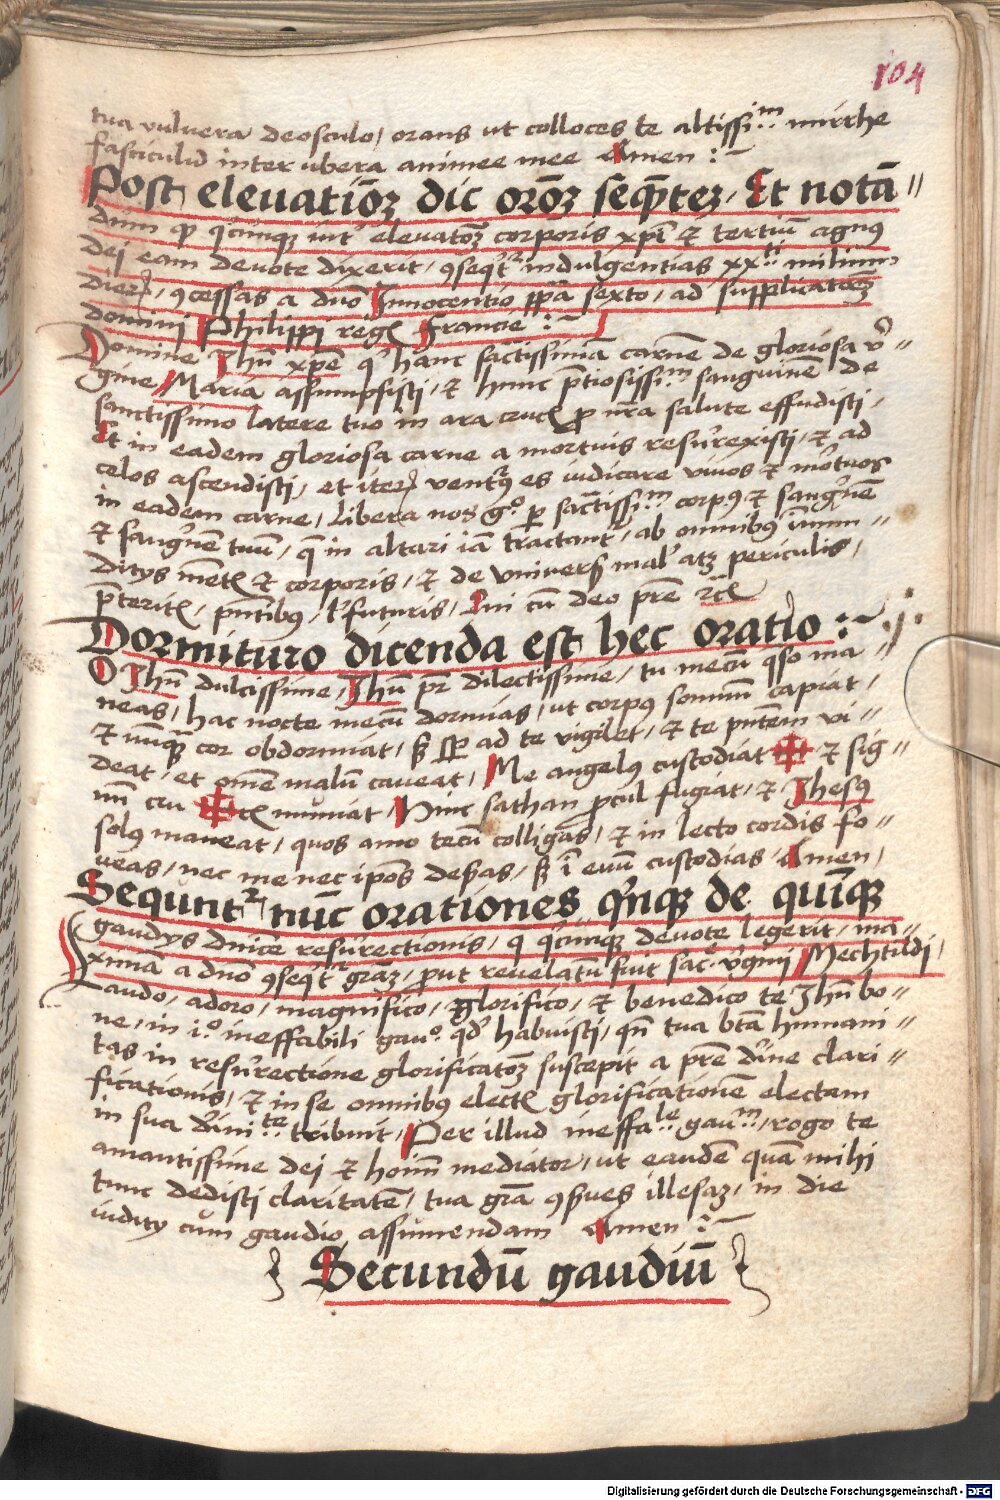 104
tua vulnera deosculo, orans ut colloces te altissi:m mirrhe
fasciculū inter ubera animee mee Amen :~
Post elevatiōꝫ dic orōꝫ seqn̄teꝫ. Et notā〃
dum ꝙ q'cūnqꝫ int' elevatōꝫ corporis xp̄i & tertiū agnus
dei eam devote dixerit, ꝯseq't' indulgentias xx:ti milium
dieꝝ, ꝯcessas a dn̄o Innocentio pp̄a sexto, ad supplicatōꝫ
domini Philippi regꝭ Francie :~
Domine Jhū xp̄e q' hanc sāctissimā carnē de gloriosa v'〃
gine Maria assumpsisti, & hunc p̄tiosissi:m sanguinē de
sanctissimo latere tuo in ara crucꝭ ꝓ nr̄a salute effudisti,
Et in eadem gloriosa carne a mortuis resurexisti, & ad
celos ascendisti, et iteꝝ ventur' es iudicare vivos & mortuos
in eadem carne, Libera nos g:o ꝑ sāctissi:m corpꝰ & sang'nē
& sang'nē tuū, q̄ in altari iā tractant', ab omnibꝰ īmun〃
ditys mētꝭ & corporis, & de univers' mal' atqꝫ periculis,
p̄teritꝭ, pn̄tibus, & futuris, Qui cū deo p̄re rc̄ꝭ
Dormituro dicenda est hec oratio :~
O Jhū dulcissime, Jhū pr̄ dilectissime, tu mecū q̄so ma〃
neas, hac nocte mecū dormias, ut corpꝰ somnū capiat,
& nūqꝫ cor obdormiat, sꝫ sp̄ ad te vigilet, & te pn̄tem vi〃
deat, et om̄e malū caveat, Me angelꝰ custodiat ✠ & sig〃
nū cru ✠ cꝭ muniat, Nunc sathan ꝓcul fugiat, & Jhesꝰ
solꝰ maneat, quos amo tecū colligas, & in lecto cordis fo〃
veas, nec me nec ip̄os deseras, sꝫ ī evū custodias, Amen,
Sequnt' nūc orationes q'nqꝫ de quīqꝫ
gaudys dn̄ice resurectionis, q̄ q'cūnqꝫ devote legerit, ma〃
ximā a dn̄o ꝯseq't' grāꝫ, ꝓut revelatū fuit sac: v'gini Mechtildi,
Laudo, adoro, magnifico, glorifico, & benedico te Jhū bo〃
ne, in i:o ineffabili gau:o qd' habuisti, qn̄ tua bt̄a humani〃
tas in resurectione glorificatōꝫ suscepit a p̄re divine clari〃
ficationis, & in se omnibus electꝭ glorificationē electam
in sua divini:te tribuit, Per illud ineffa:le gau:m, rogo te
amantissime dei & hoīm mediator, ut eandē quā mihi
tunc dedisti claritatē, tua grā ꝯserves illesaꝫ, in die
iudity cum gaudio assumendam Amen :~
Secundū gaudiū
Digitalisierung gefördert durch die Deutsche Forschungsgemeinschaft - DFG